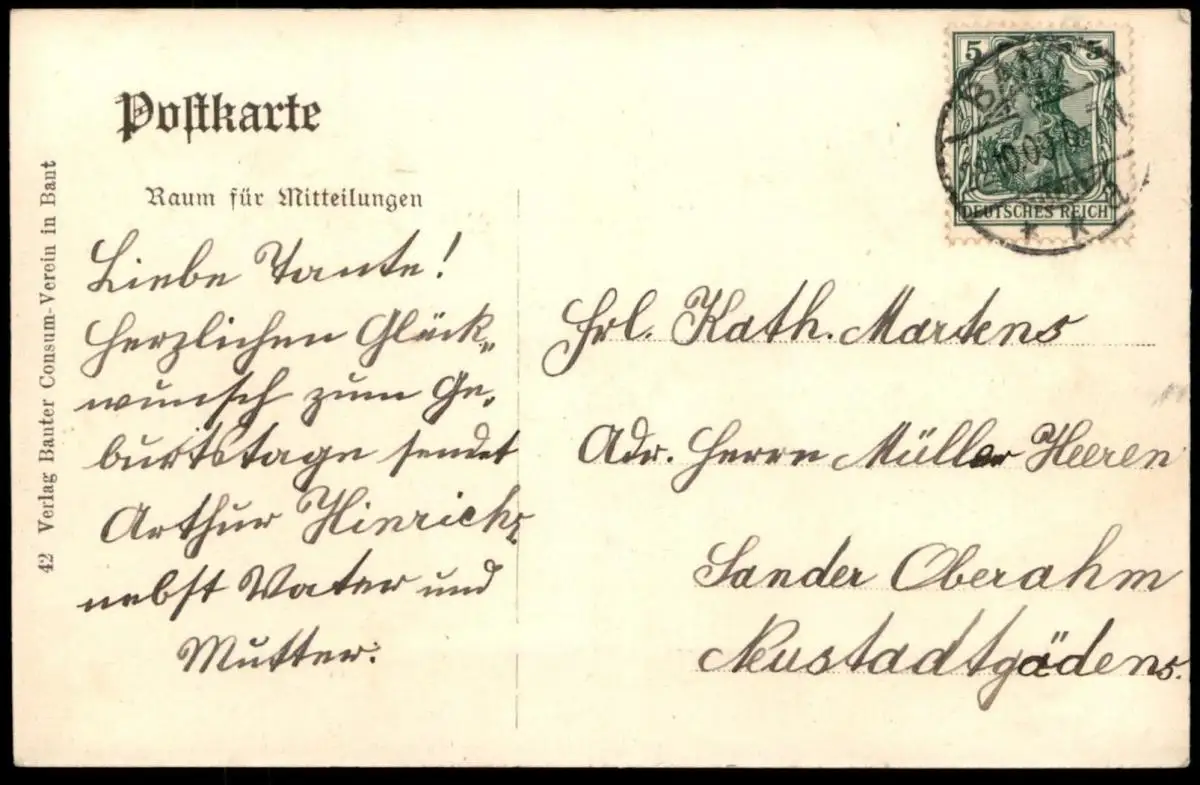 Postkarte
Raum für Mitteilungen
42 Verlag Banter Consum-Verein in Bant
Liebe Tante!
Herzlichen Glück-
wunsch zum Ge-
burtstage sendet
Arthur Hinrichs
nebst Vater und
Mutter.
5 5
DEUTSCHES REICH
BANT
Frl. Kath. Martens
Adr. Herrn Müller Heeren
Sander Oberahm
Neustadtgödens.